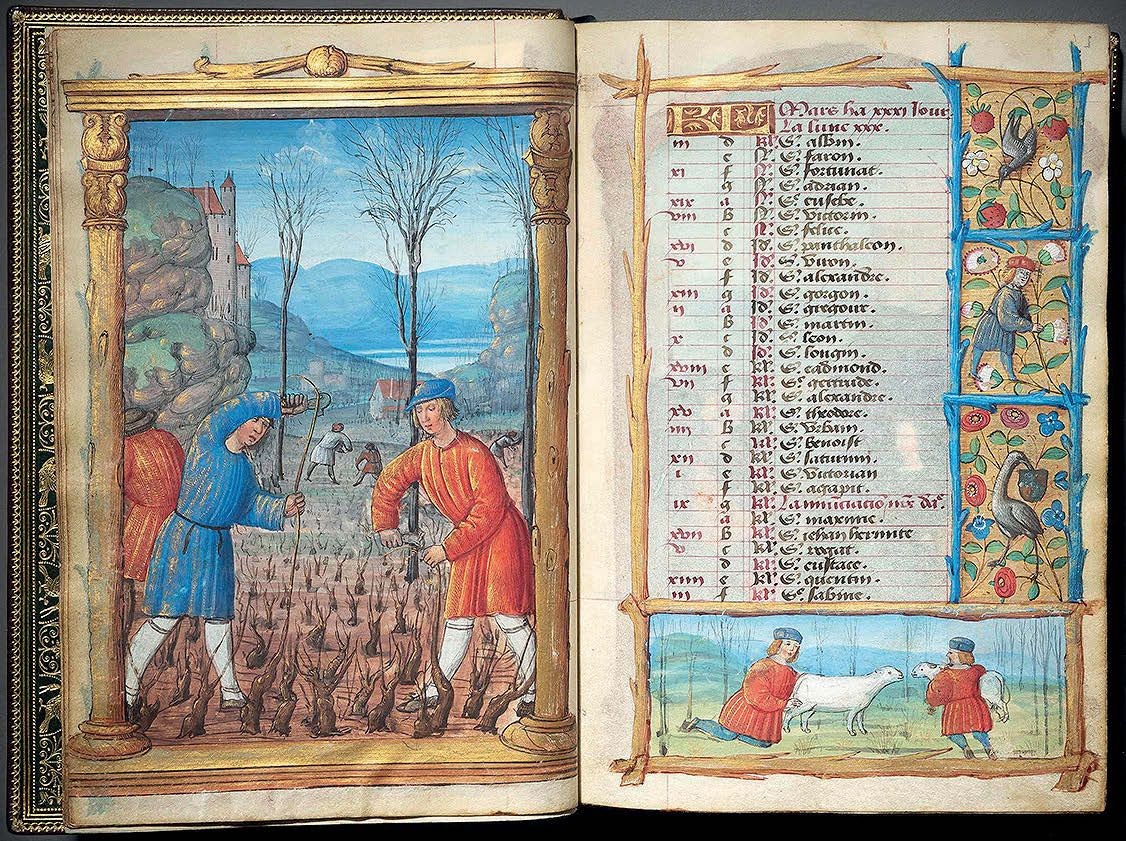 KL Mars ha xxxi Jour
La lune xxx.
iii d kl. S. albin.
e N. S. faron.
xi f N. S. fortunat.
g N. S. adrian.
xix a N. S. eusebe.
viii b N. S. victorin.
c N. S. felice.
xvi d Id. S. panthaleon.
v e Id. S. viron.
f Id. S. alexandre.
xiii g Id. S. gorgon.
ii a Id. S. gregoire.
b Id. S. martin.
x c Id. S. leon.
d Id. S. longin.
xviii e kl. S. eadmond.
vii f kl. S. gertrude.
g kl. S. alexandre.
xv a kl. S. theodore.
iiii b kl. S. urbain.
c kl. S. benoist
xii d kl. S. saturnin.
i e kl. S. victorian
f kl. S. agapit.
ix g kl. Lanunciatio nre da.
a kl. S. maxime.
xvii b kl. S. jehan hermite
v c kl. S. rogat.
d kl. S. eustace.
xiiii e kl. S. quentin.
iii f kl. S. sabine.